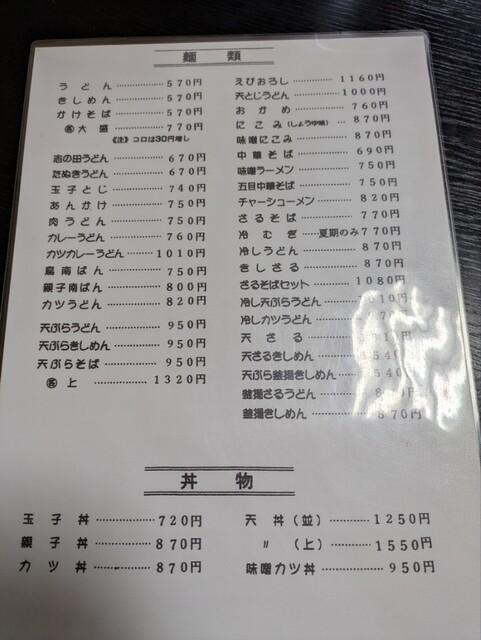 麺類
うどん 570円
きしめん 570円
かけそば 570円
大盛 770円
《注》コロは30円増し
志の田うどん 670円
たぬきうどん 670円
玉子とじ 740円
あんかけ 750円
肉うどん 750円
カレーうどん 760円
カツカレーうどん 1010円
鳥南ばん 750円
親子南ばん 800円
カツうどん 820円
天ぷらうどん 950円
天ぷらきしめん 950円
天ぷらそば 950円
上 1320円
えびおろし 1160円
天とじうどん 1000円
おかめ 760円
にこみ(しょうゆ味) 870円
味噌にこみ 870円
中華そば 690円
味噌ラーメン 750円
五目中華そば 750円
チャーシューメン 820円
ざるそば 770円
冷むぎ 夏期のみ770円
冷しうどん 870円
きしざる 870円
ざるそばセット 1080円
冷し天ぷらうどん 010円
冷しカツうどん
天ざる
天ざるきしめん 540
天ぷら釜揚きしめん 540
釜揚ざるうどん 円
釜揚きしめん 870円
丼物
玉子丼 720円
親子丼 870円
カツ丼 870円
天丼(並) 1250円
〃(上) 1550円
味噌カツ丼 950円